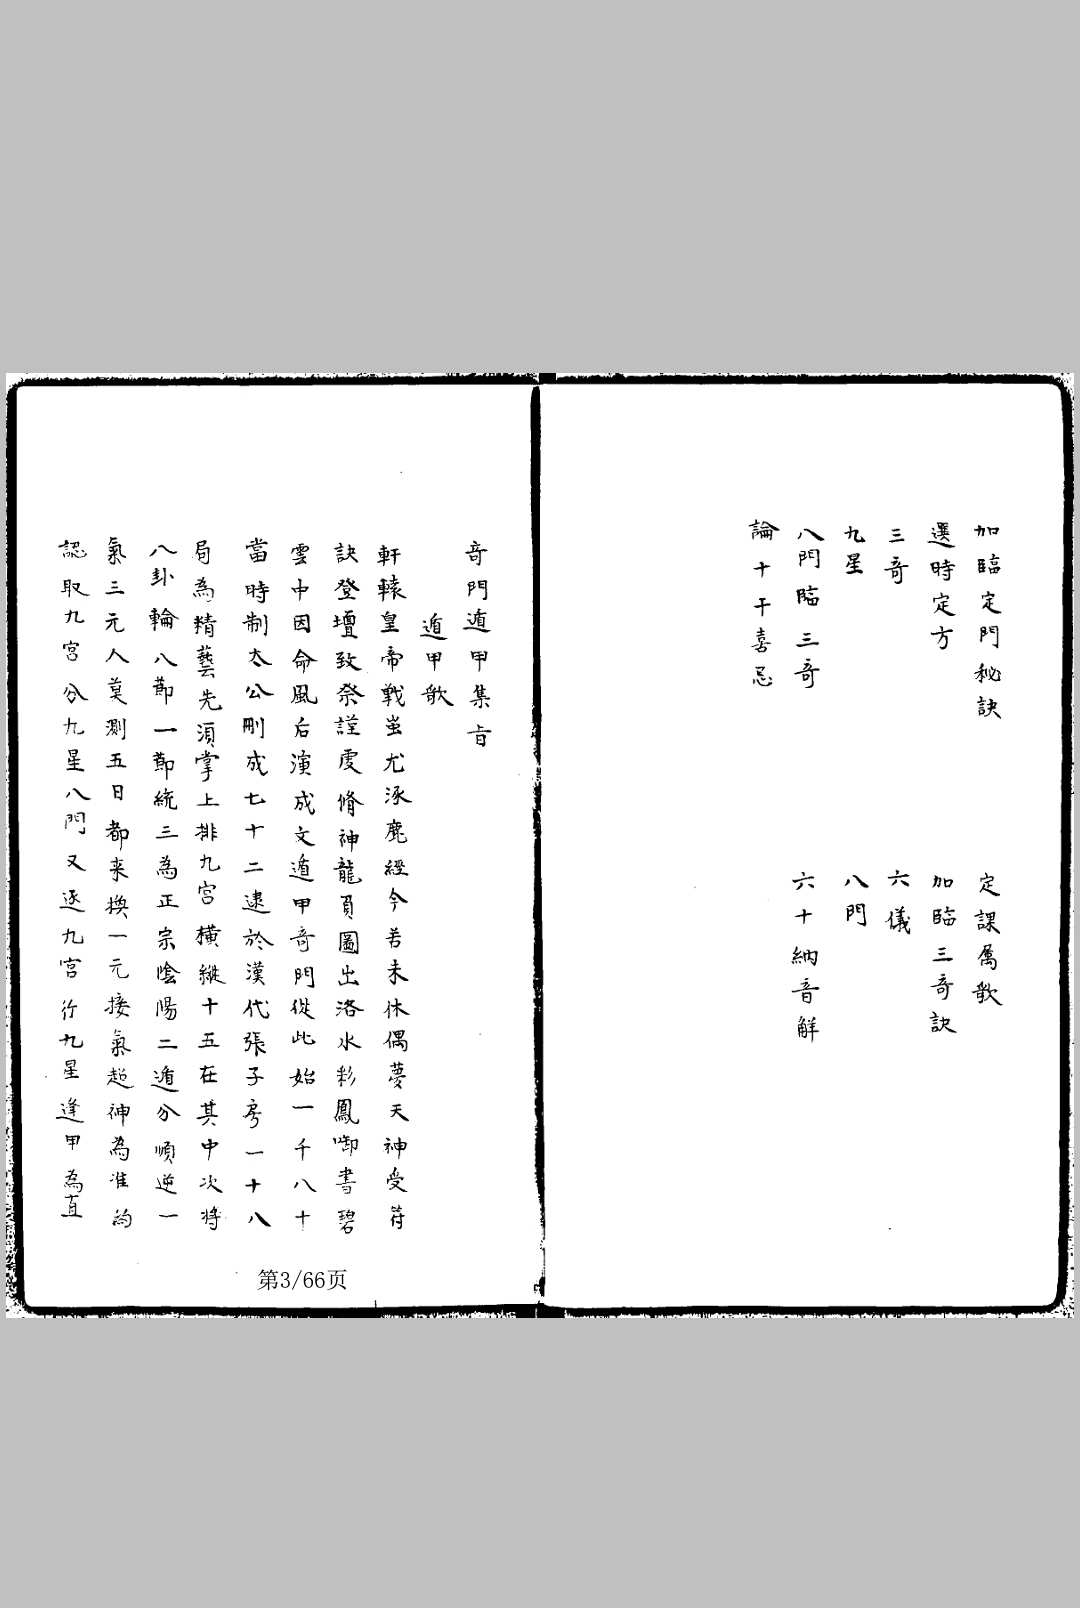 加臨定門秘訣　定課厲歌
選時定方　加臨三奇訣
三奇　六儀
九星　八門
八門臨三奇　六十納音解
論十干喜忌
奇門遁甲集旨
遁甲歌
軒轅皇帝戰蚩尤涿鹿經今若未休偶夢天神受符
訣登壇致祭謹虔脩神龍負圖出洛水彩鳳啣書碧
雲中因命風后演成文遁甲奇門從此始一千八十
當時制太公刪成七十二逮於漢代張子房一十八
局為精藝先須掌上排九宮橫縱十五在其中次將
八卦輪八節一節統三為正宗陰陽二遁分順逆一
氣三元人莫測五日都來換一元接氣超神為准的
認取九宮分九星八門又逐九宮行九星逢甲為直
第3/66页